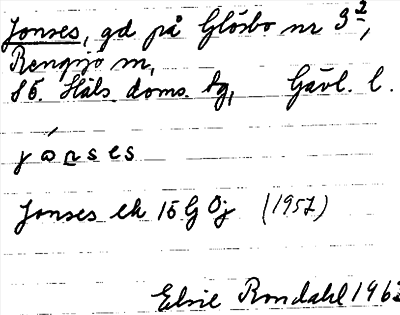 Jonses, gd på Glösbo nr 3²,
Rengsjö sn,
S ö. Häls. doms. bg, Gävl. l.
jónses
Jonses ek 15 G Öj (1957)
Elsie Rondahl 1962